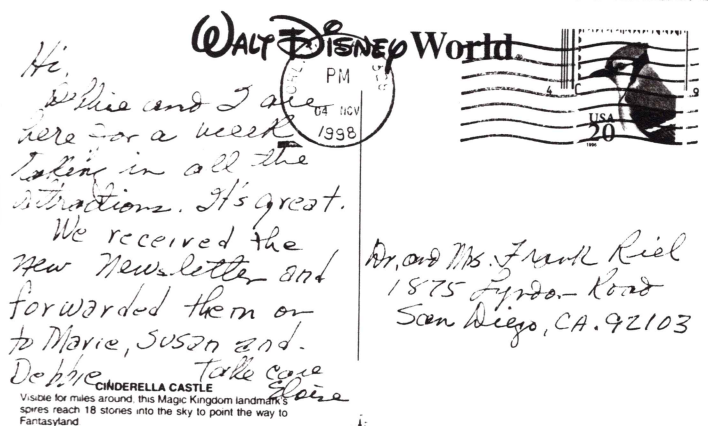 WALT DISNEY World.
PM
04 NOV
1998
USA
20
1996
Hi,
and I are
here for a week
taking in all the
attractions. It's great.
We received the
new Newsletter and
forwarded them on
to Marie, Susan and
Debbie
Take care
Eloise
Dr. and Mrs. Frank Riel
1875 Lyndon Road
San Diego, CA. 92103
CINDERELLA CASTLE
Visible for miles around, this Magic Kingdom landmark's
spires reach 18 stories into the sky to point the way to
Fantasyland